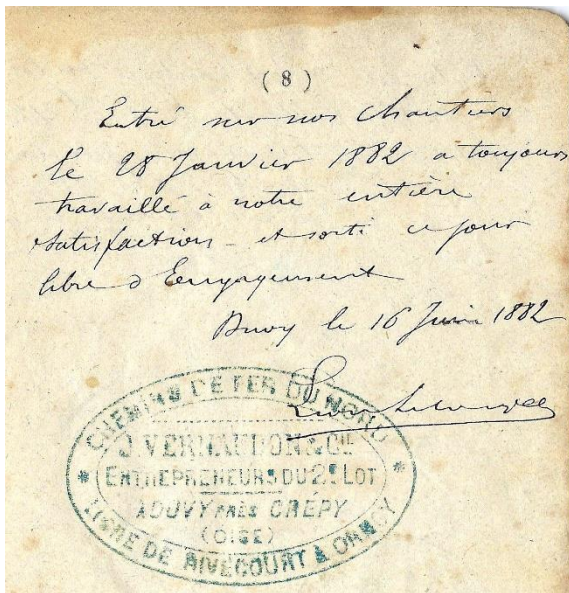 (8)
Entré sur nos chantiers
le 28 Janvier 1882 a toujours
travaillé à notre entière
satisfaction et sorti ce jour
libre d'Engagement
le 16 Juin 1882
CHEMINS DE FER DU NORD
J. & CIE
ENTREPRENEURS DU 2E LOT
PRÈS CRÉPY
(OISE)
LIGNE DE RIVECOURT À ORMOY